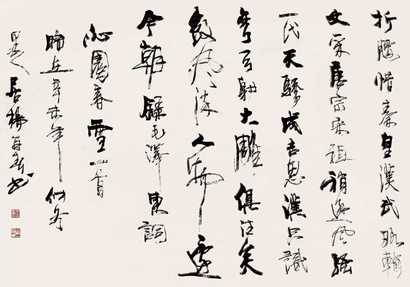 折腰惜秦皇漢武略輸
文采唐宗宋祖稍遜風騷
一代天驕成吉思漢只識
彎弓射大雕俱往矣
數風流人物還
今朝錄毛澤東詞
沁園春雪一首
辛未年仲冬
居楊再春